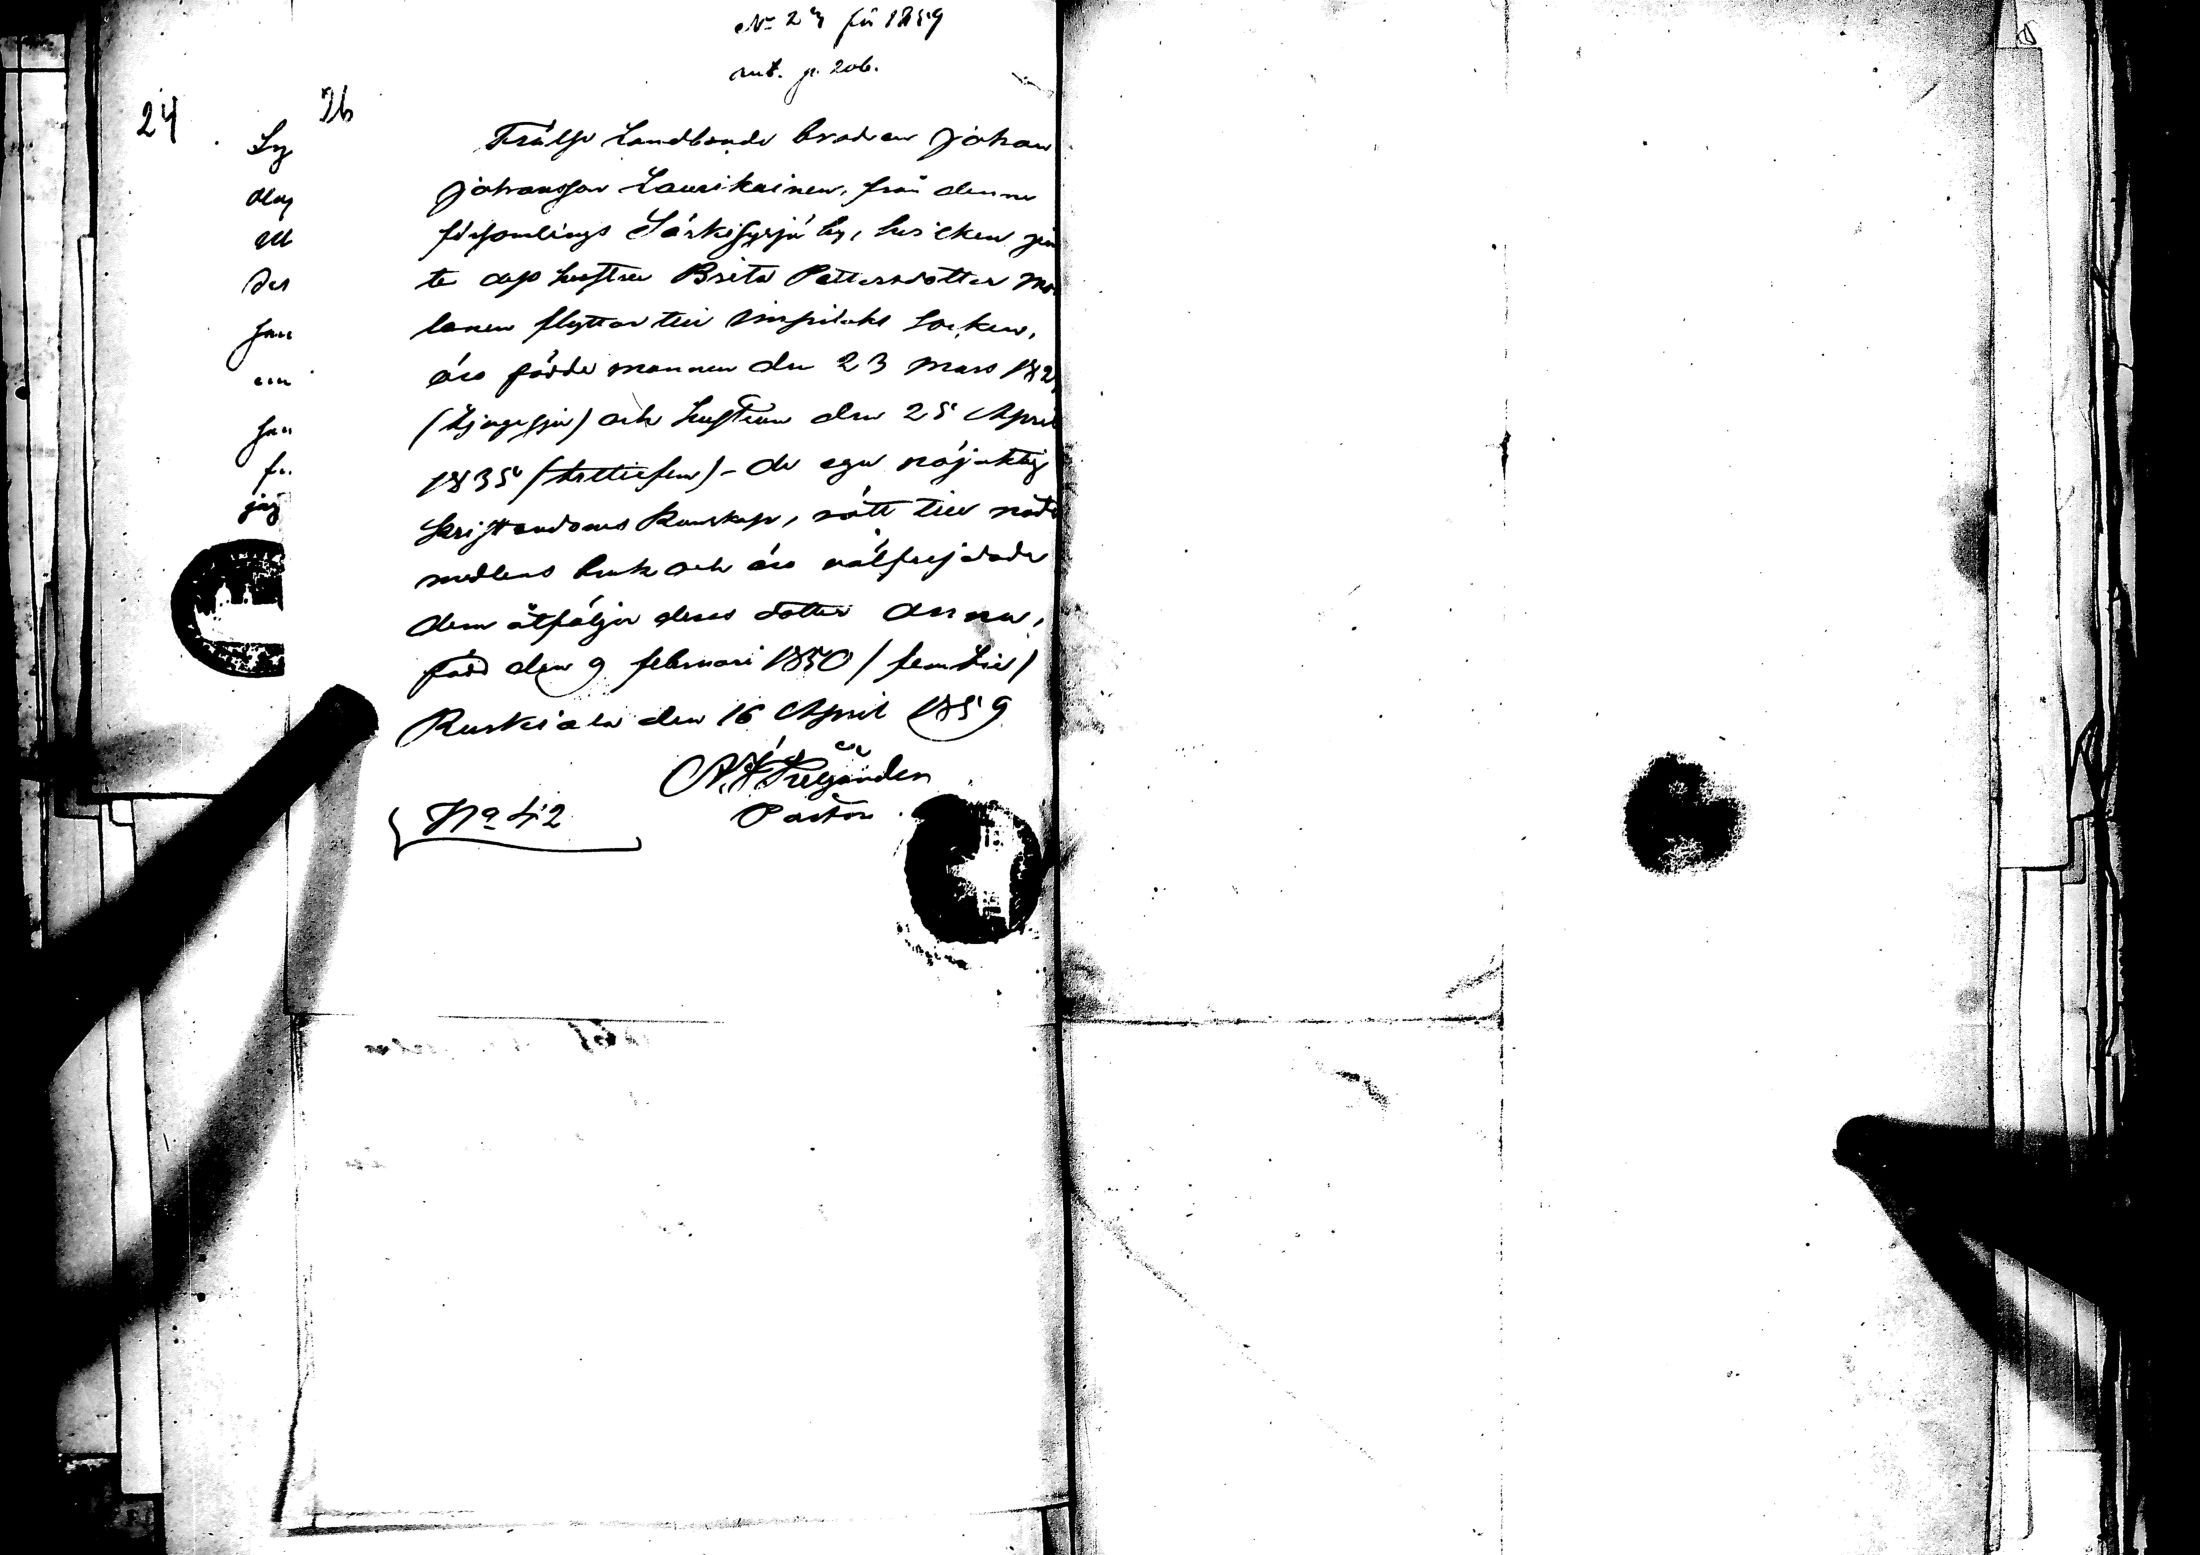 No 24 för 1859
int. p. 206.
24
26
Frälse Landbonde brodren Johan
Johansson Laurikainen, från denne
församlings Särkisyrjä by, hvilken jem
te dess hustru Brita Pettersdotter
lanen flyttar till Impilaks Socken,
äro födde mannen den 23 Mars 182
(tjugu sju) och hustrun den 25 April
1835 (trettiofem) - de ega nöjaktig
kristendoms kunskap, rätt till nåde
medlens bruk och äro välfrejdade
dem åtföljer deras dotter Anna,
född den 9 februari 1850 / femtio /
Ruskiala den 16 April 1859
Pastor
No 42